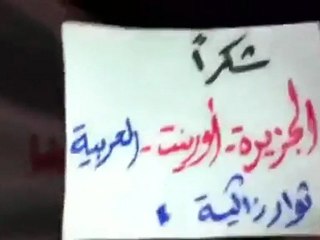 شكراً
الجزيرة - أورينت - العربية
ثوار زاكية